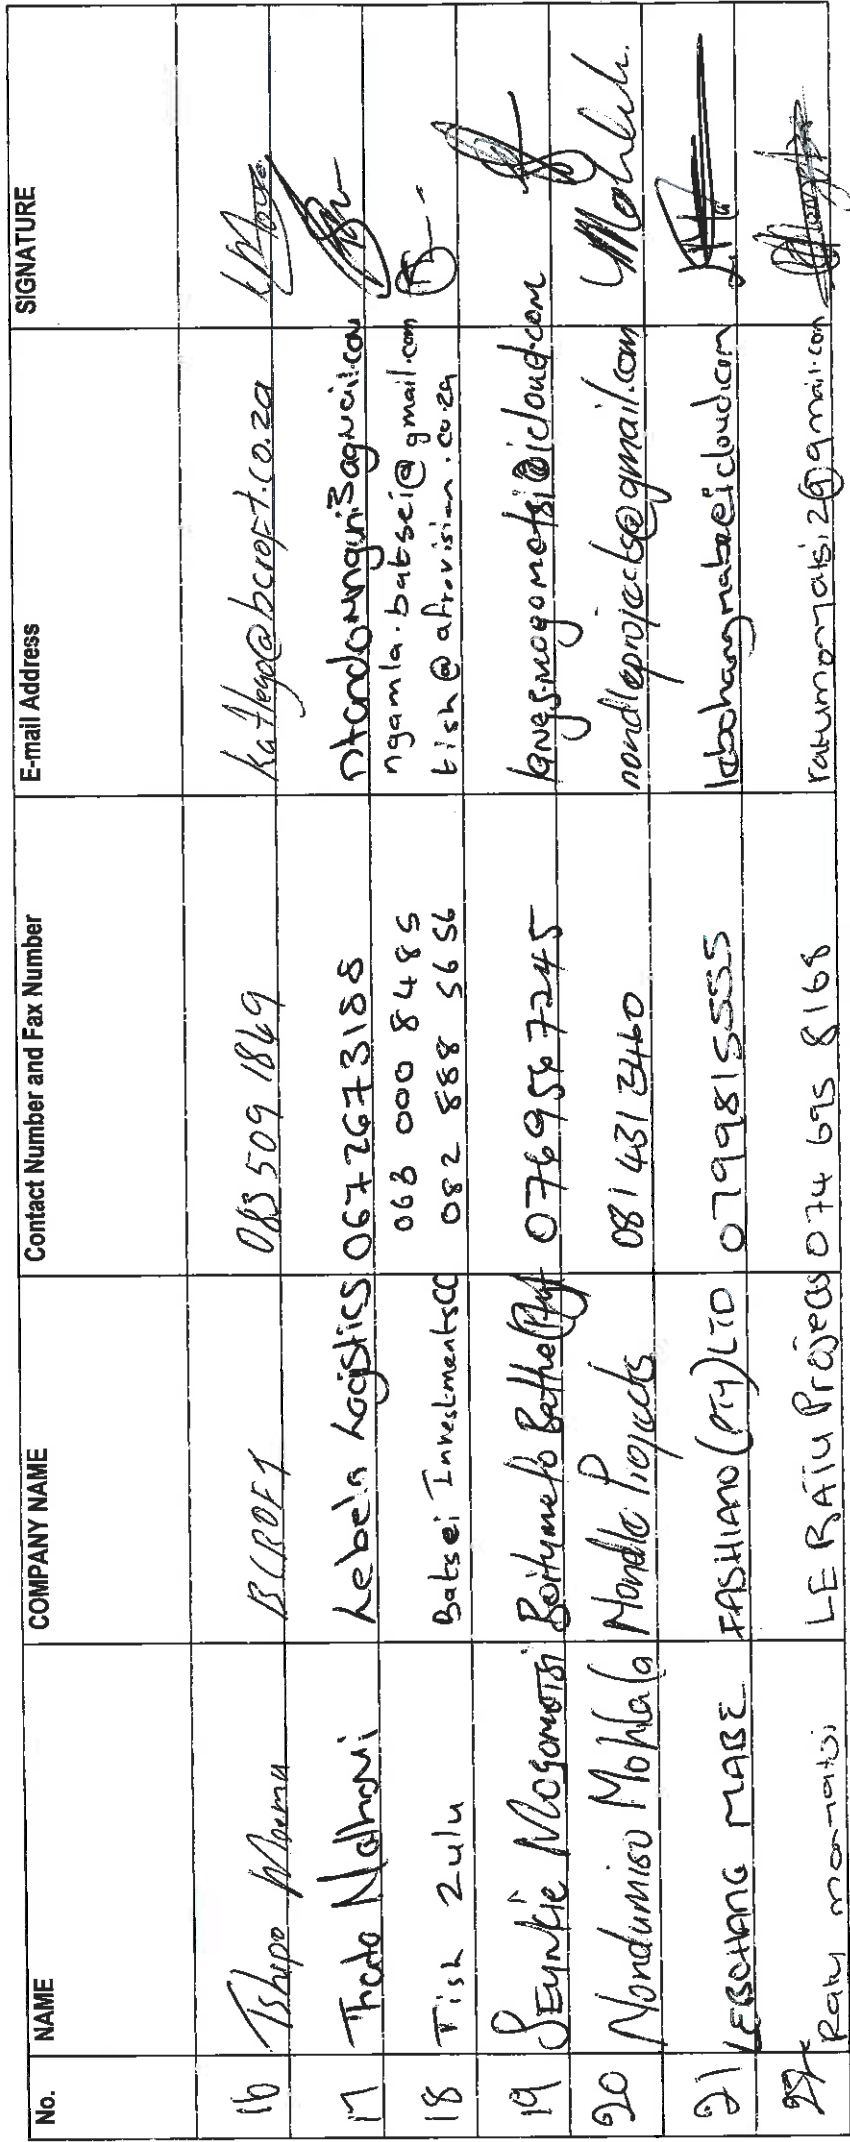 No. NAME COMPANY NAME Contact Number and Fax Number E-mail Address SIGNATURE
16 Tshepo Moema BCROFT 083 509 1869 katlego@bcroft.co.za
17 Thato Lebela Logistics 0672673188
18 Tish Zulu Batsei Investments CC 063 000 8485 ngamla.batsei@gmail.com
082 888 5656 tish@afrovision.co.za
19 Seynkie Mogomotsi Boitumelo Bathe (Pty) 0769567245 agnes.mogomotsi@icloud.com
20 Nondumiso Mohlala Nondle Projects 081 431 3460 nondleprojects@gmail.com
21 LEBOHANG MABE FASHIANO (PTY) LTD 0799815555 lebohangmabe@icloud.com
Ratu LE RATU Projects 074 695 8168